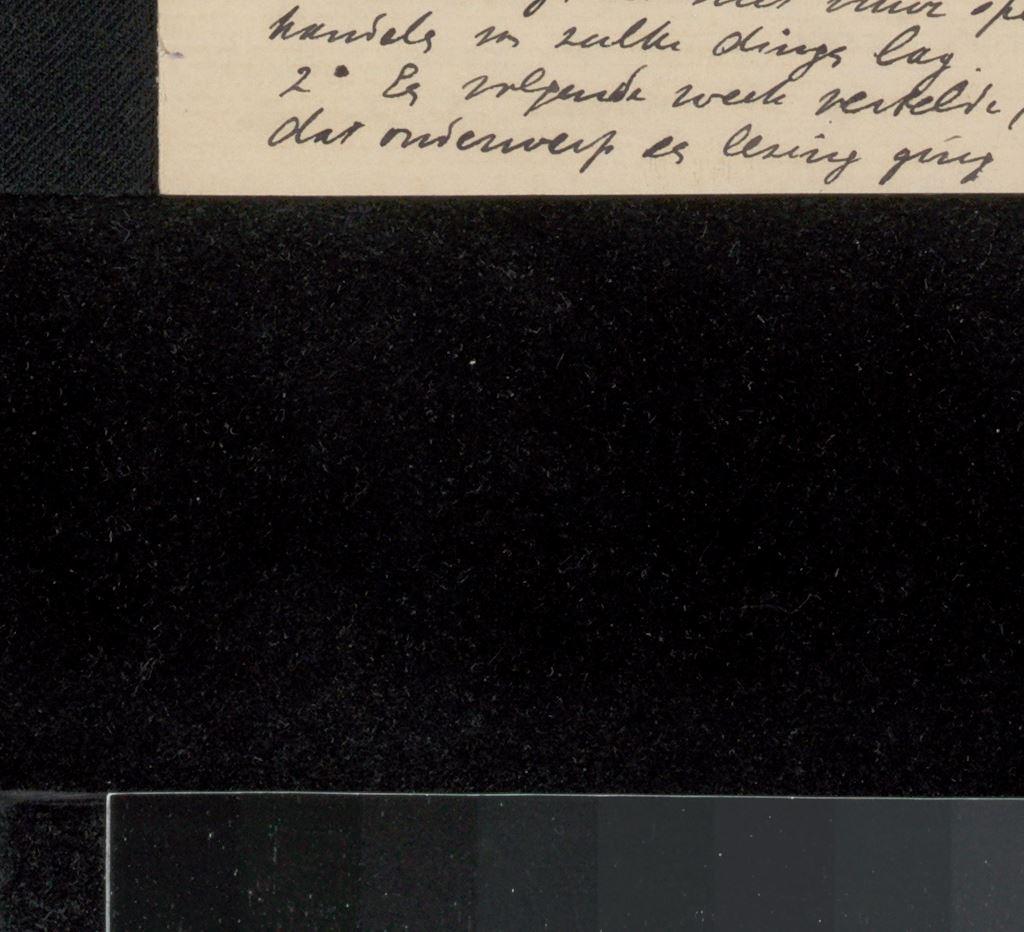 handels in zulke dings lag.
2° Eg volgende week vertelde
dat onderwerp eg lezing ging